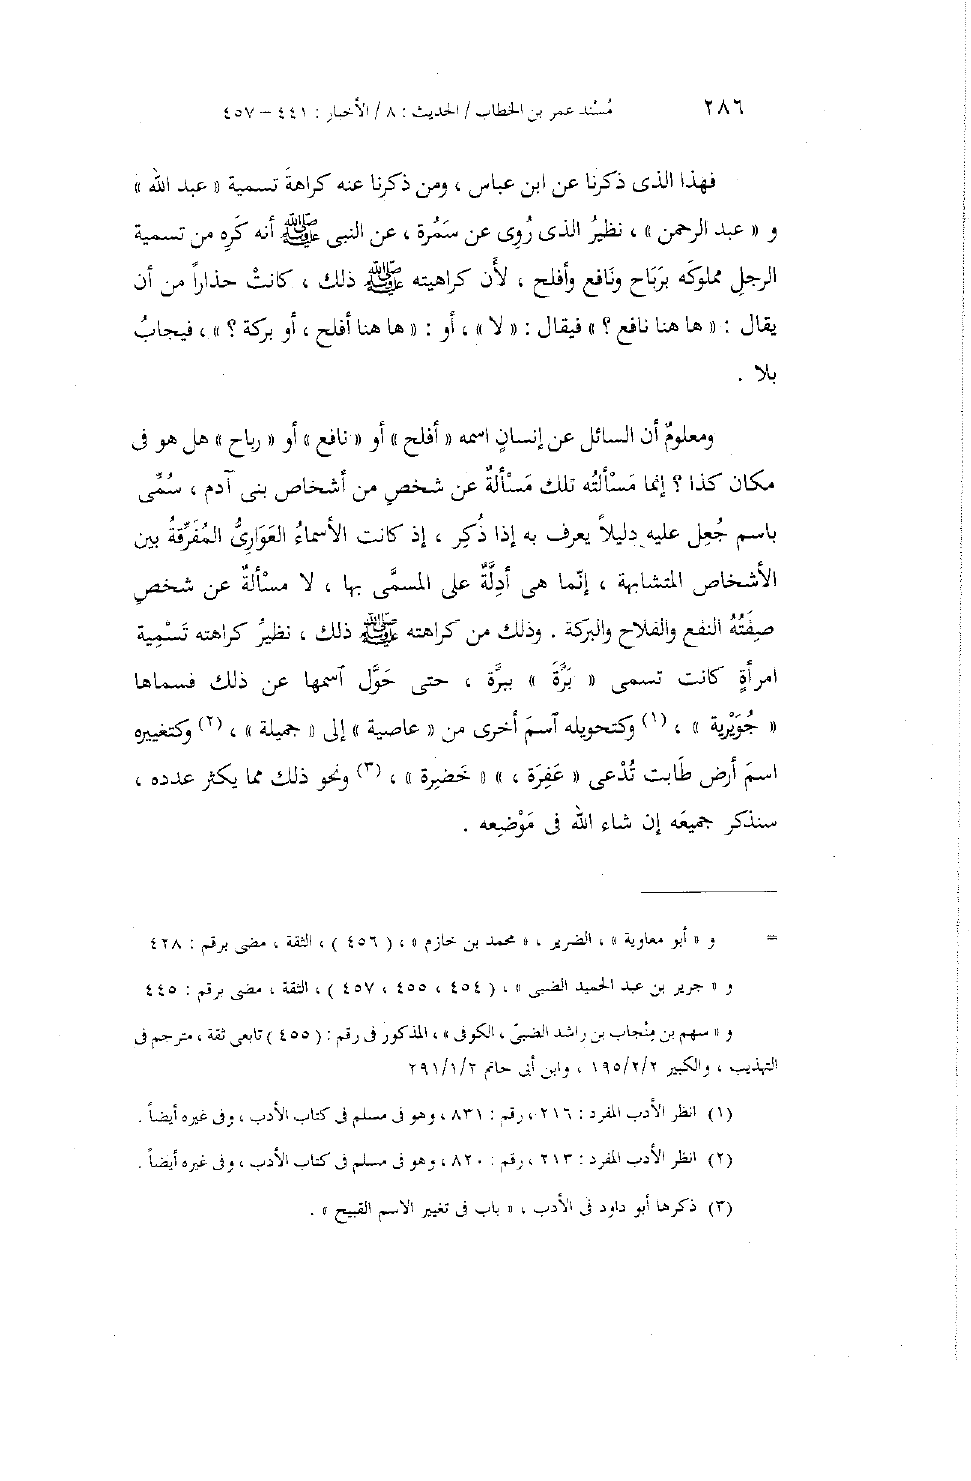 ٢٨٦ مُسْند عمر بن الخطاب / الحديث : ٨ / الأخبار : ٤٤١ – ٤٥٧
فهذا الذى ذكرنا عن ابن عباس ، ومن ذكرنا عنه كراهةَ تسمية « عبد الله »
و « عبد الرحمن » ، نظيرُ الذى رُوِى عن سَمُرة ، عن النبى ﷺ أنه كَرِه من تسمية
الرجلِ مملوكَه برَبَاح ونَافع وأفلح ، لأَن كراهيته ﷺ ذلك ، كانتْ حذاراً من أن
يقال : « ها هنا نافع ؟ » فيقال : « لا » ، أو : « ها هنا أفلح ، أو بركة ؟ » ، فيجابُ
بلا .
ومعلومٌ أن السائل عن إنسانٍ اسمه « أفلح » أو « نافع » أو « رباح » هل هو فى
مكان كذا ؟ إنما مَسْألتُه تلك مَسْألةٌ عن شخصٍ من أشخاص بنى آدم ، سُمِّى
باسم جُعِل عليه دليلاً يعرف به إذا ذُكِر ، إذ كانت الأسماءُ العَوَارِىُّ المُفَرِّقةُ بين
الأشخاص المتشابهة ، إنّما هى أدِلَّةٌ على المسمَّى بها ، لا مسْألةٌ عن شخصٍ
صِفَتُهُ النفع والفلاح والبركة . وذلك من كراهته ﷺ ذلك ، نظيرُ كراهته تَسْمِية
امرأةٍ كانت تسمى « بَرَّةَ » ببرَّة ، حتى حَوَّل ٱسمها عن ذلك فسماها
« جُوَيْرية » ، (١) وكتحويله ٱسمَ أخرى من « عاصية » إلى « جميلة » ، (٢) وكتغييره
اسمَ أرض طَابت تُدْعى « عَفِرَة ، » « خَضِيرة » ، (٣) ونحو ذلك مما يكثر عدده ،
سنذكر جميعَه إن شاء الله فى مَوْضِعه .
= و « أبو معاوية » ، الضرير ، « محمد بن خازم » ، ( ٤٥٦ ) ، الثقة ، مضى برقم : ٤٢٨
و « جرير بن عبد الحميد الضبى » ، ( ٤٥٤ ، ٤٥٥ ، ٤٥٧ ) ، الثقة ، مضى برقم : ٤٤٥
و « سهم بن مِنْجاب بن راشد الضبىّ ، الكوفى » ، المذكور فى رقم : ( ٤٥٥ ) تابعى ثقة ، مترجم فى
التهذيب ، والكبير ١٩٥/٢/٢ ، وابن أبى حاتم ٢٩١/١/٢
(١) انظر الأدب المفرد : ٢١٦ ، رقم : ٨٣١ ، وهو فى مسلم فى كتاب الأدب ، وفى غيره أيضاً .
(٢) انظر الأدب المفرد : ٢١٣ ، رقم : ٨٢٠ ، وهو فى مسلم فى كتاب الأدب ، وفى غيره أيضاً .
(٣) ذكرها أبو داود فى الأدب ، « باب فى تغيير الاسم القبيح » .